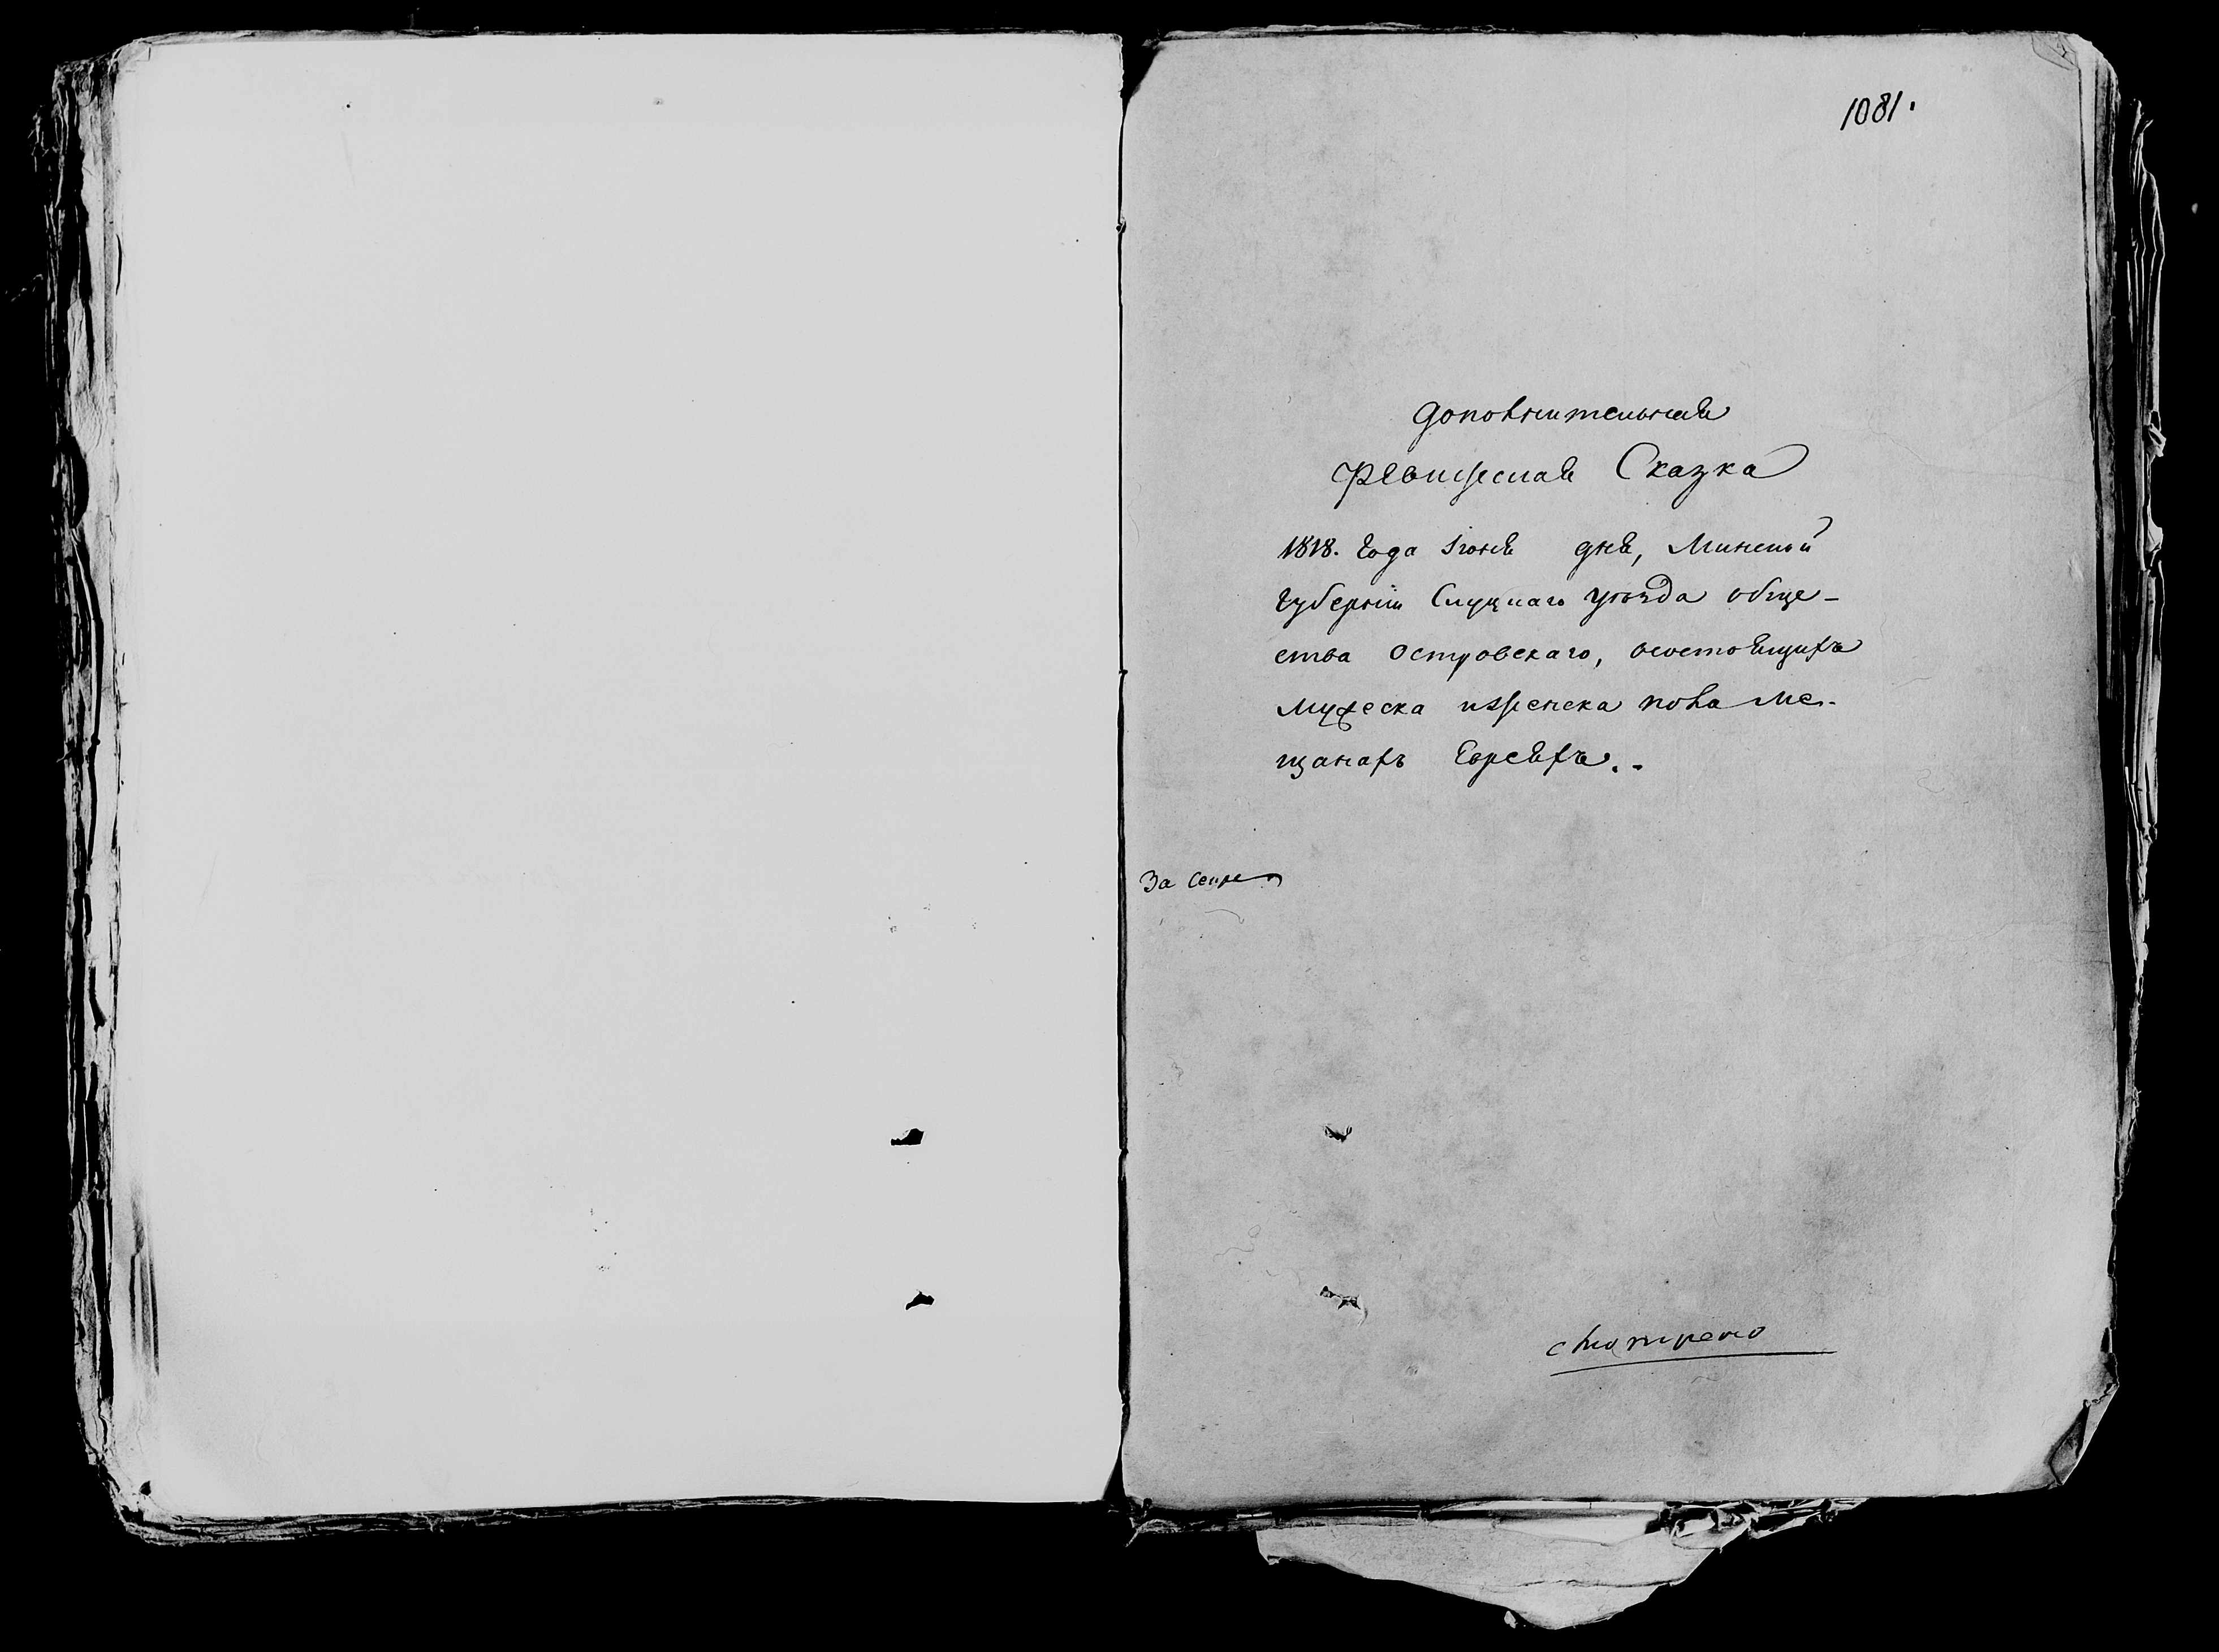 1081.
дополнительная
Ревизская Сказка
1818. Года Iюня дня, Минской
Губернiи Слуцкаго уѣзда обще-
ства Островскаго, осостоящихъ
мужеска иженска пола ме-
щанахъ Евреяхъ..
За Секре